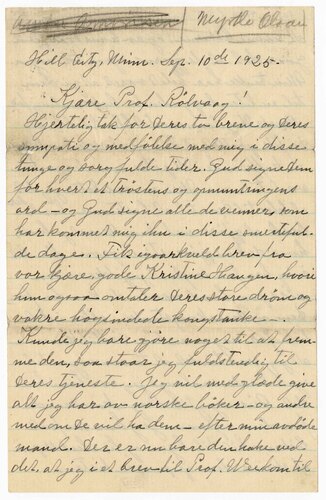 Myrtle
Hill City, Minn. Sep. 10de 1925.
Kjære Prof. Rölvaag!
Hjertelig tak for Deres to breve og Deres
simpati og medfölelse med mig i disse
tunge og sorgfulde tider. Gud signe dem
for hvert et tröstens og opmuntringens
ord – og Gud signe alle de venner, som
har kommet mig ihu i disse smerteful-
de dage. Fik igaarkveld brev fra
vor kjære, gode Kristine Haugen, hvori
hun ogsaa omtaler Deres store dröm og
vakre högsindede kongstanke –.
Kunde jeg bare gjöre noget til at frem-
me den, saa staar jeg fuldstendig til
Deres tjeneste. Jeg vil med glæde give
alt jeg har av norske böker – og andre
med om De vil ha dem – efter min avdöde
mand. Der er nu bare den hake ved
det, at jeg i et brev til Prof. Weikom til